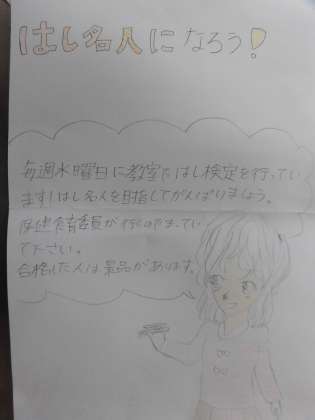 はし名人になろう!
毎週水曜日に教室ではし検定を行ってい
ます!はし名人を目指してがんばりましょう。
食育委員が行くのでまってい
て下さい。
合格した人は景品があります。